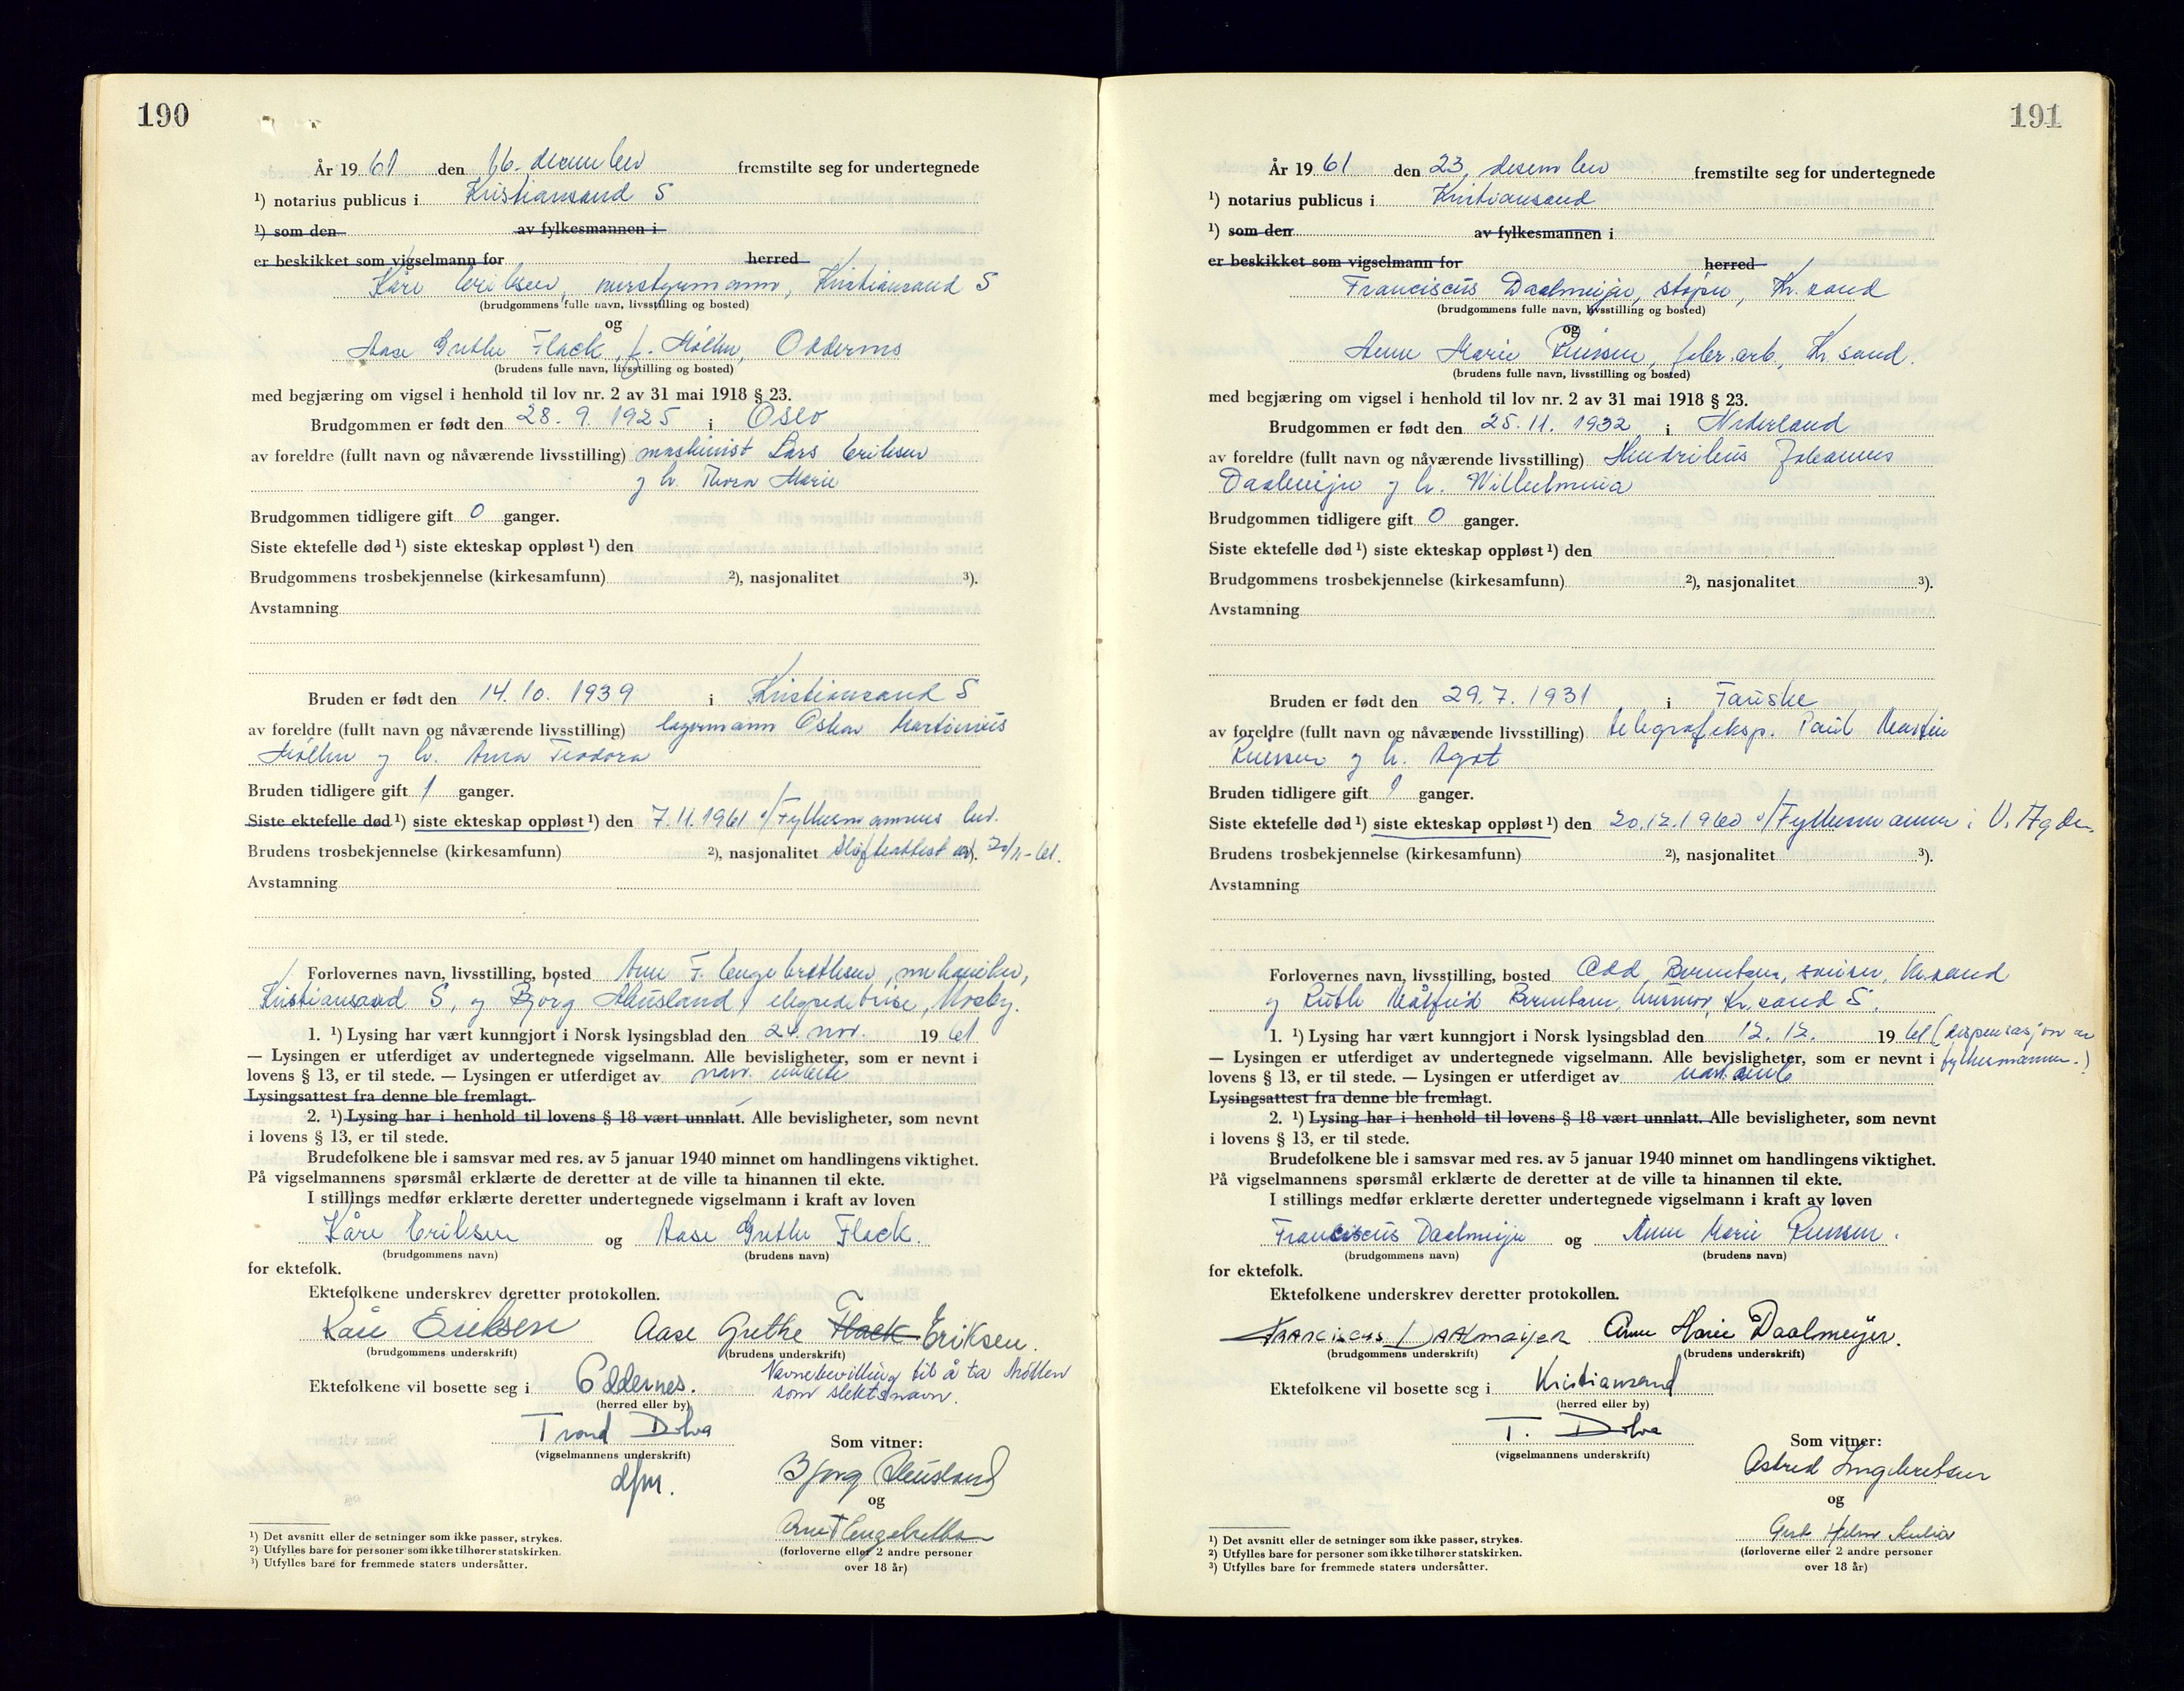 190
År 19 61 den 16. desember fremstilte seg for undertegnede
¹) notarius publicus i Kristiansand S
¹) som den av fylkesmannen i
er beskikket som vigselmann for herred
Kåre Eriksen, murstyrmann, Kristiansand S
(brudgommens fulle navn, livsstilling og bosted)
og
Aase Grethe Flack, f. Møllen, Oddernes
(brudens fulle navn, livsstilling og bosted)
med begjæring om vigsel i henhold til lov nr. 2 av 31 mai 1918 § 23.
Brudgommen er født den 28. 9. 1925 i Oslo
av foreldre (fullt navn og nåværende livsstilling) maskinist Lars Eriksen
og h. Thora Marie
Brudgommen tidligere gift 0 ganger.
Siste ektefelle død ¹) siste ekteskap oppløst ¹) den
Brudgommens trosbekjennelse (kirkesamfunn) ²), nasjonalitet ³).
Avstamning
Bruden er født den 14. 10. 1939 i Kristiansand S
av foreldre (fullt navn og nåværende livsstilling) lagermann Oskar Martinius
Møllen og h. Anna Teodora
Bruden tidligere gift 1 ganger.
Siste ektefelle død ¹) siste ekteskap oppløst ¹) den 7.11.1961 v/Fylkesmannens bev.
Brudens trosbekjennelse (kirkesamfunn) ²), nasjonalitet Skifteattest av ³). 20/11-61.
Avstamning
Forlovernes navn, livsstilling, bosted Arne F. Engebrethsen, mekaniker,
Kristiansand S, og Bjørg Ausland, Mosby.
1. ¹) Lysing har vært kunngjort i Norsk lysingsblad den 24. nov. 19 61
— Lysingen er utferdiget av undertegnede vigselmann. Alle bevisligheter, som er nevnt i
lovens § 13, er til stede. — Lysingen er utferdiget av
Lysingsattest fra denne ble fremlagt.
2. ¹) Lysing har i henhold til lovens § 18 vært unnlatt. Alle bevisligheter, som nevnt
i lovens § 13, er til stede.
Brudefolkene ble i samsvar med res. av 5 januar 1940 minnet om handlingens viktighet.
På vigselmannens spørsmål erklærte de deretter at de ville ta hinannen til ekte.
I stillings medfør erklærte deretter undertegnede vigselmann i kraft av loven
Kåre Eriksen og Aase Grethe Flack.
(brudgommens navn) (brudens navn)
for ektefolk.
Ektefolkene underskrev deretter protokollen.
Kåre Eriksen Aase Grethe Flack Eriksen.
(brudgommens underskrift) (brudens underskrift)
Navnebevilling til å ta Møllen
Ektefolkene vil bosette seg i Oddernes. som slektsnavn.
(herred eller by)
Trond Dolva
(vigselmannens underskrift) Som vitner:
dfm. Bjørg Ausland
og
Arne F Engebrethsen
(forloverne eller 2 andre personer
over 18 år)
¹) Det avsnitt eller de setninger som ikke passer, strykes.
²) Utfylles bare for personer som ikke tilhører statskirken.
³) Utfylles bare for fremmede staters undersåtter.
191
År 19 61 den 23. desember fremstilte seg for undertegnede
¹) notarius publicus i Kristiansand
¹) som den av fylkesmannen i
er beskikket som vigselmann for herred
Franciscus Daalmeijer, støper, Kr.sand
(brudgommens fulle navn, livsstilling og bosted)
og
Anne Marie fabr.arb, Kr.sand.
(brudens fulle navn, livsstilling og bosted)
med begjæring om vigsel i henhold til lov nr. 2 av 31 mai 1918 § 23.
Brudgommen er født den 25. 11. 1932 i Nederland
av foreldre (fullt navn og nåværende livsstilling) Hendrikus Johannes
Daalmeijer og h. Wilhelmina
Brudgommen tidligere gift 0 ganger.
Siste ektefelle død ¹) siste ekteskap oppløst ¹) den
Brudgommens trosbekjennelse (kirkesamfunn) ²), nasjonalitet ³).
Avstamning
Bruden er født den 29. 7. 1931 i Fauske
av foreldre (fullt navn og nåværende livsstilling) telegrafeksp. Paul Martin
og h. Agot
Bruden tidligere gift 1 ganger.
Siste ektefelle død ¹) siste ekteskap oppløst ¹) den 20.12.1960 v/Fylkesmannen i V. Agder
Brudens trosbekjennelse (kirkesamfunn) ²), nasjonalitet ³).
Avstamning
Forlovernes navn, livsstilling, bosted Odd Berntsen, Kr.sand
og Ruth Målfrid Berntsen, husmor, Kr.sand S.
1. ¹) Lysing har vært kunngjort i Norsk lysingsblad den 12. 12. 19 61 (dispensasjon av
— Lysingen er utferdiget av undertegnede vigselmann. Alle bevisligheter, som er nevnt i fylkesmannen.)
lovens § 13, er til stede. — Lysingen er utferdiget av
Lysingsattest fra denne ble fremlagt.
2. ¹) Lysing har i henhold til lovens § 18 vært unnlatt. Alle bevisligheter, som nevnt
i lovens § 13, er til stede.
Brudefolkene ble i samsvar med res. av 5 januar 1940 minnet om handlingens viktighet.
På vigselmannens spørsmål erklærte de deretter at de ville ta hinannen til ekte.
I stillings medfør erklærte deretter undertegnede vigselmann i kraft av loven
Franciscus Daalmeijer og Anne Marie
(brudgommens navn) (brudens navn)
for ektefolk.
Ektefolkene underskrev deretter protokollen.
Franciscus Daalmeijer Anne Marie Daalmeijer.
(brudgommens underskrift) (brudens underskrift)
Ektefolkene vil bosette seg i Kristiansand
(herred eller by)
T. Dolva
(vigselmannens underskrift) Som vitner:
Astrid Ingebretsen
og
Gert
(forloverne eller 2 andre personer
over 18 år)
¹) Det avsnitt eller de setninger som ikke passer, strykes.
²) Utfylles bare for personer som ikke tilhører statskirken.
³) Utfylles bare for fremmede staters undersåtter.